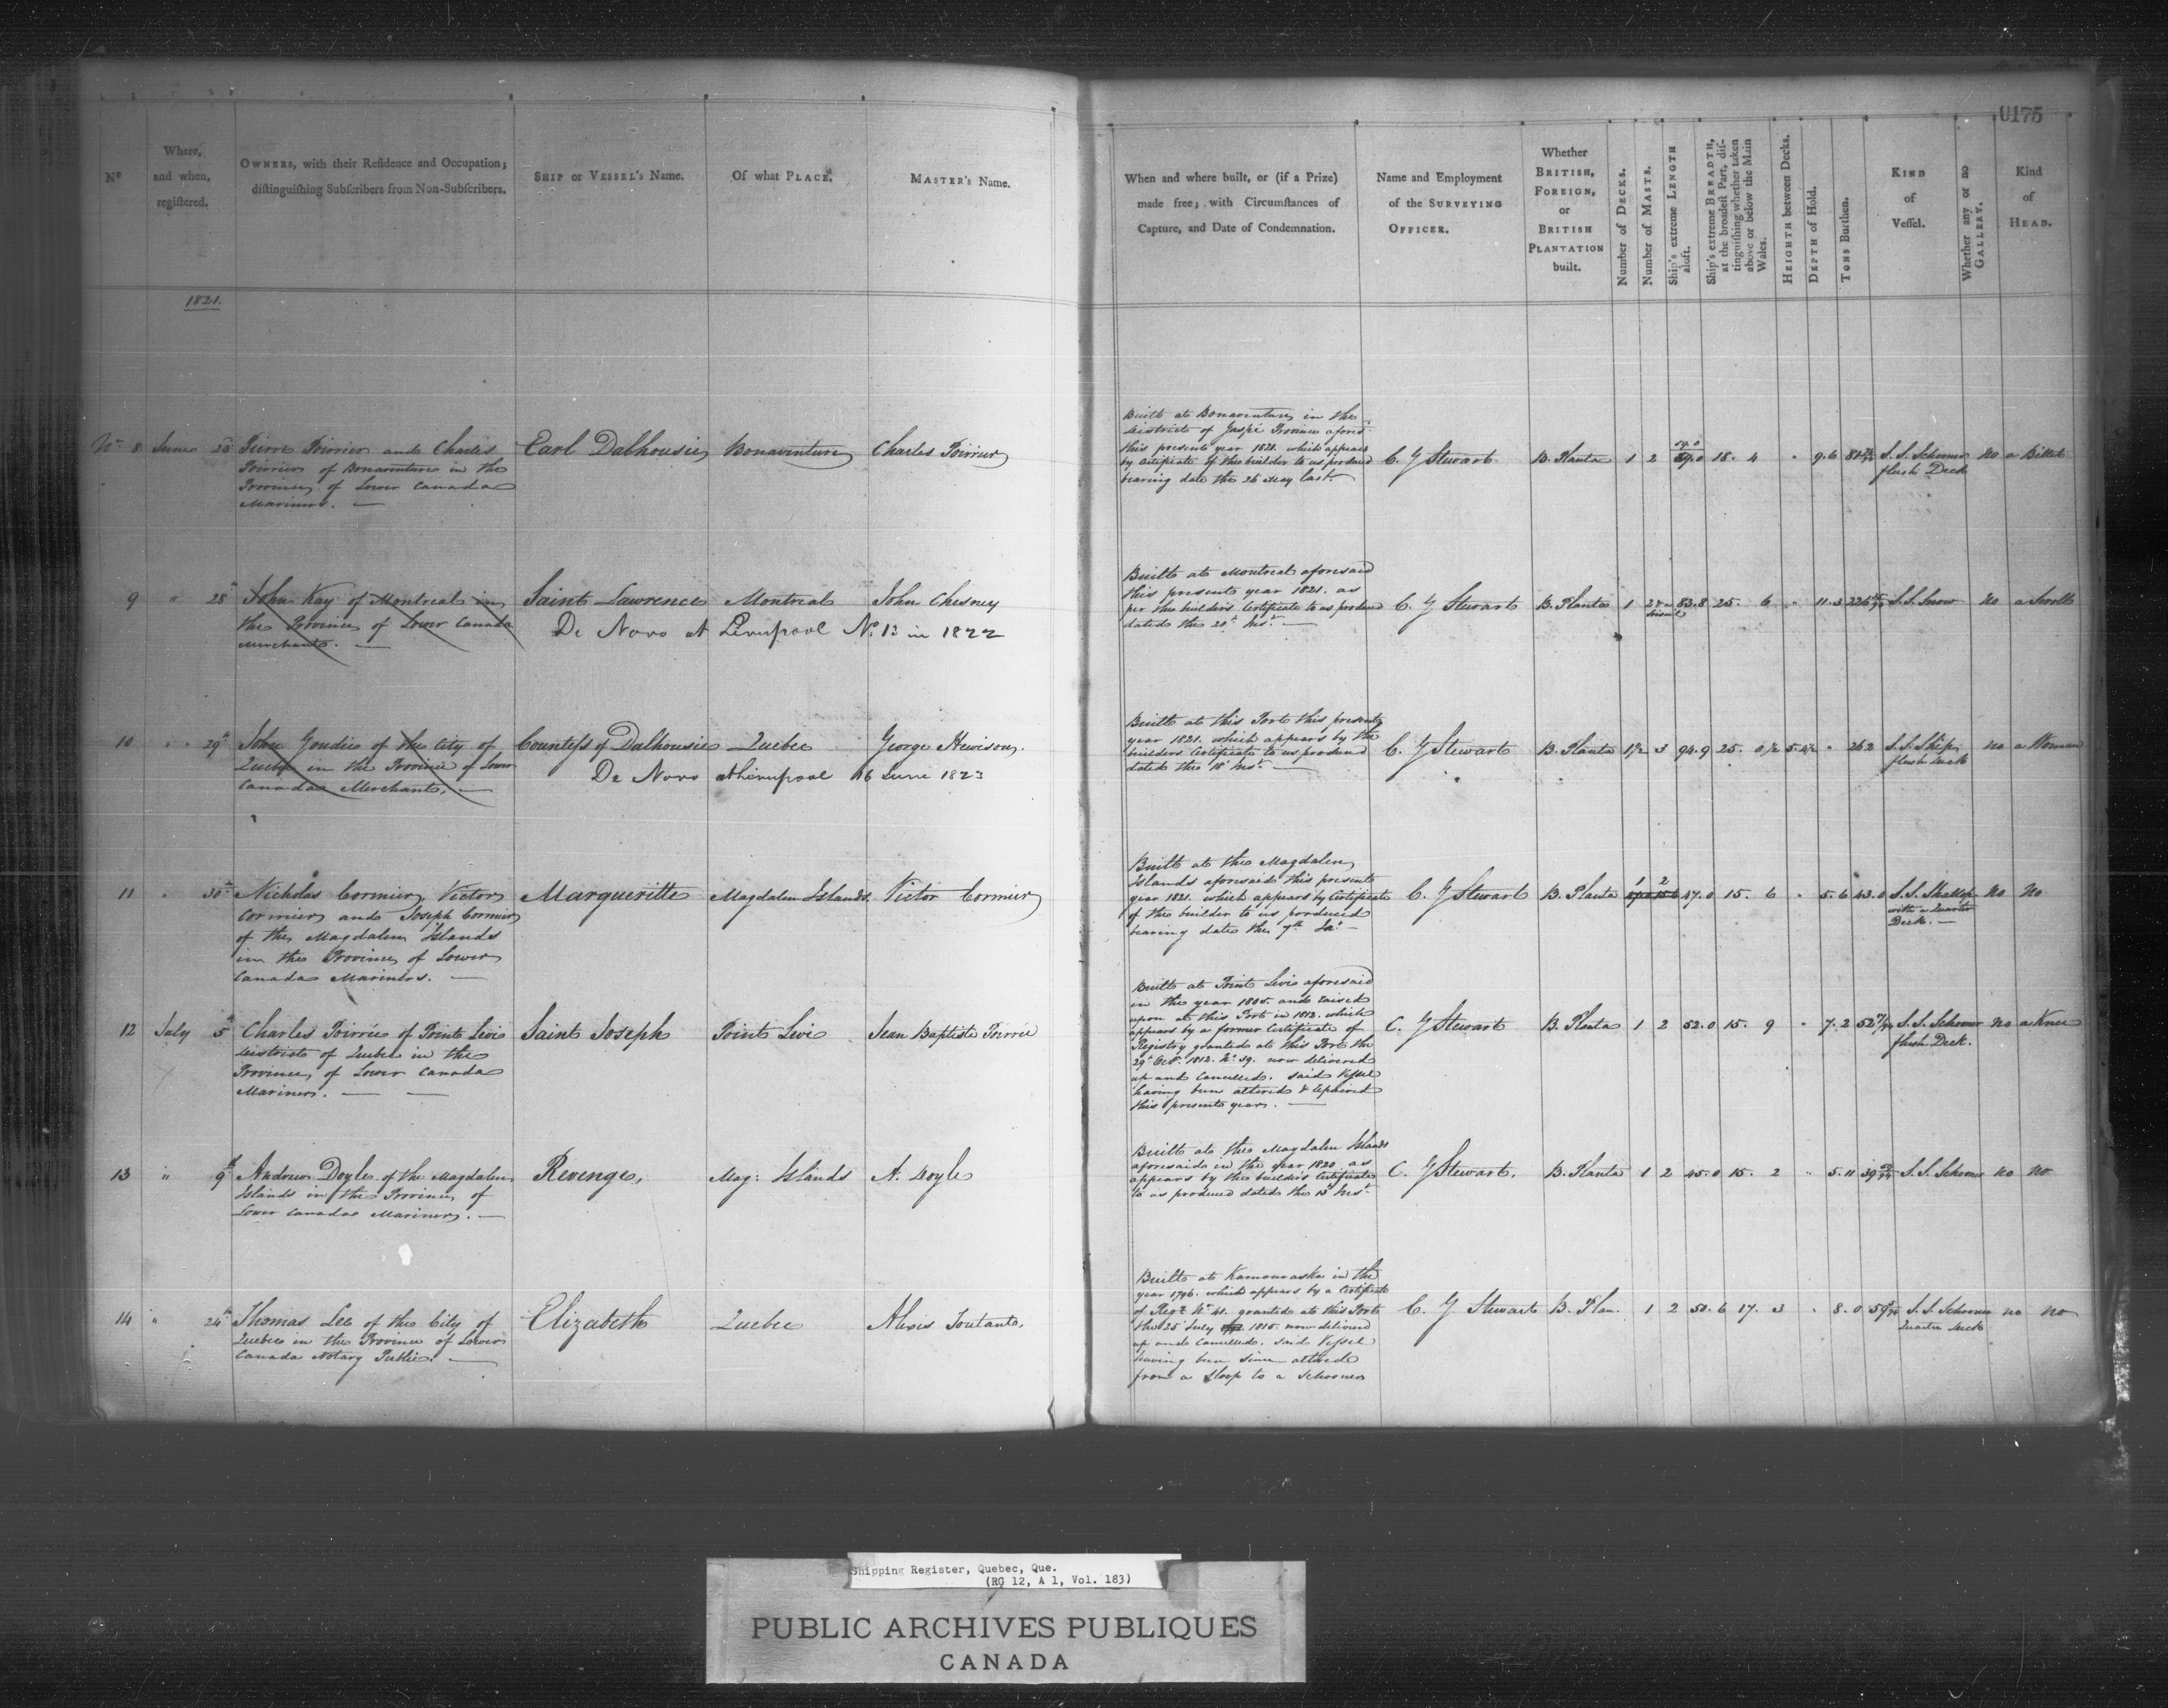 0175
No
Where, and when, registered.
OWNERS, with their Residence and Occupation; distinguishing Subscribers from Non-Subscribers.
SHIP or VESSEL's Name.
Of what PLACE.
MASTER's Name.
When and where built, or (if a Prize) made free; with Circumstances of Capture, and Date of Condemnation.
Name and Employment of the SURVEYING OFFICER.
Whether BRITISH, FOREIGN, or BRITISH PLANTATION built.
Number of DECKS.
Number of MASTS.
Ship's extreme LENGTH aloft.
Ship's extreme BREADTH, at the broadest Part, distinguishing whether taken above or below the Main Wales.
HEIGHTH between Decks.
DEPTH of Hold.
TONS Burthen.
KIND of Vessel.
Whether any or no GALLERY.
Kind of HEAD.
1821.
No 8 June 23d Pierre Poirrier and Charles
Poirrier of Bonaventure in the
Province of Lower Canada
Mariners. —
Earl Dalhousie Bonaventure Charles Poirrier
Built at Bonaventure in the
District of Gaspé Province afores.d
this present year 1821. which appears
by Certificate of the builder to us produced
bearing date the 26 May last. —
C. G Stewart B. Planta 1 2 59.0 18. 4 " 9.6 S. S. Schooner no a Billet
flush Deck
9 " 28th John Kay of Montreal in
the Province of Lower Canada
Merchant. —
Saint Lawrence Montreal John Chesney
De Novo at Liverpool No 13 in 1822
Built at Montreal aforesaid
this present year 1821. as
per the builders Certificate to us produced
dated the 20th Inst. —
C. G Stewart B. Planta 1 83.8 25. 6 " 11.3 S. S. Snow no a Scroll
10 " 29th John Goudie of the City of
Quebec in the Province of Lower
Canada Merchant. —
Countess of Dalhousie Quebec George Hewison
De Novo at Liverpool 16 June 1823
Built at this Port this present
year 1821. which appears by the
builders Certificate to us produced
dated the 18th Inst. —
C. G Stewart B. Planta 1½ 3 94.9 25. 0½ 5.4½ " 262 S. S. Ship no a Woman
flush deck
11 " 30th Nicholas Cormier, Victor
Cormier and Joseph Cormier
of the Magdalen Islands
in the Province of Lower
Canada Mariners. —
Margueritte Magdalen Islands. Victor Cormier
Built at the Magdalen
Islands aforesaid this present
year 1821. which appears by Certificate
of the builder to us produced
bearing date the 7th —
C. G Stewart B. Planta 1 2 47.0 15. 6 " 5.6 43.0 S. S. Shallop no no
with a Quarter
Deck. —
12 July 5th Charles Poirrée of Point Levie
District of Quebec in the
Province of Lower Canada
Mariner. — —
Saint Joseph Point Levi Jean Baptiste Poirrée
Built at Point Levie aforesaid
in the year 1805. and raised
upon at this Port in 1812. which
appears by a former Certificate of
Registry granted at this Port the
29th Oct. 1812. No 59. now delivered
up and Cancelled. said Vessel
having been altered & repaired
this present year. —
C. G Stewart B. Planta 1 2 52.0 15. 9 " 7.2 S. S. Schooner no a Knee
flush Deck.
13 " 9th Andrew Doyle of the Magdalen
Islands in the Province of
Lower Canada Mariner. —
Revenge, Mag: Islands A. Doyle
Built at the Magdalen Islands
aforesaid in the year 1820 as
appears by the builders Certificate
to us produced dated the Inst.
C. G Stewart. B. Planta 1 2 45.0 15. 2 " 5.11 S. S. Schooner no no
14 " 24th Thomas Lee of the City of
Quebec in the Province of Lower
Canada Notary Public. —
Elizabeth Quebec Alexis Toutant.
Built at Kamouraska in the
year 1796. which appears by a Certificate
of Reg.y No 41. granted at this Port
the 25 July 1815. now delivered
up and Cancelled. said Vessel
having been since altered
from a Sloop to a Schooner
C. G Stewart B. Plan. 1 2 50.6 17. 3 " 8.0 S. S. Schooner no no
Quarter deck
Shipping Register, Quebec, Que.
(RG 12, A 1, Vol. 183)
PUBLIC ARCHIVES PUBLIQUES
CANADA